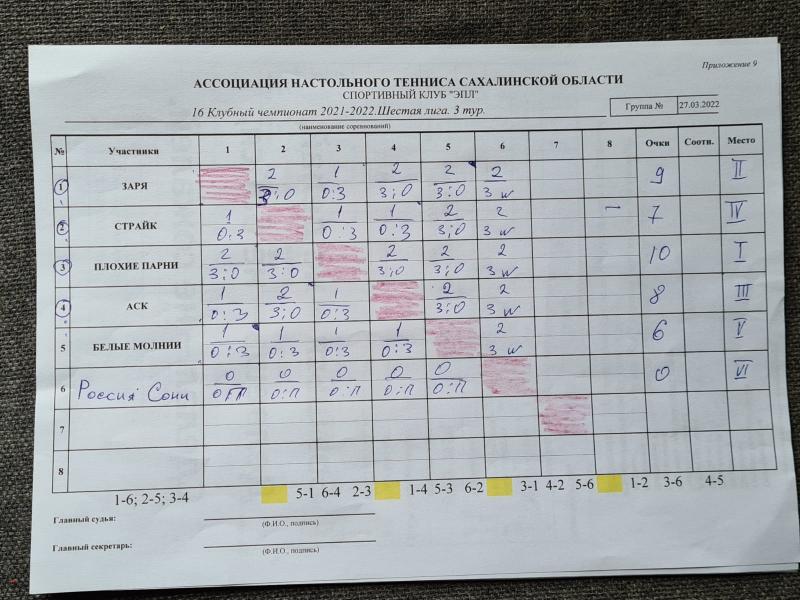 Приложение 9
АССОЦИАЦИЯ НАСТОЛЬНОГО ТЕННИСА САХАЛИНСКОЙ ОБЛАСТИ
СПОРТИВНЫЙ КЛУБ "ЭПЛ"
16 Клубный чемпионат 2021-2022.Шестая лига. 3 тур.
Группа № 27.03.2022
(наименование соревнований)
№ Участники 1 2 3 4 5 6 7 8 Очки Соотн. Место
2 1 2 2 2
1 ЗАРЯ 9 II
3:0 0:3 3:0 3:0 3 w
1 1 1 2 2
2 СТРАЙК 7 IV
0:3 0:3 0:3 3:0 3 w
2 2 2 2 2
3 ПЛОХИЕ ПАРНИ 10 I
3:0 3:0 3:0 3:0 3 w
1 2 1 2 2
4 АСК 8 III
0:3 3:0 0:3 3:0 3 w
1 1 1 1 2
5 БЕЛЫЕ МОЛНИИ 6 V
0:3 0:3 0:3 0:3 3 w
0 0 0 0 0
6 Россия Сочи 0 VI
0:П 0:П 0:П 0:П
7
8
1-6; 2-5; 3-4 5-1 6-4 2-3 1-4 5-3 6-2 3-1 4-2 5-6 1-2 3-6 4-5
Главный судья:
(Ф.И.О., подпись)
Главный секретарь:
(Ф.И.О., подпись)